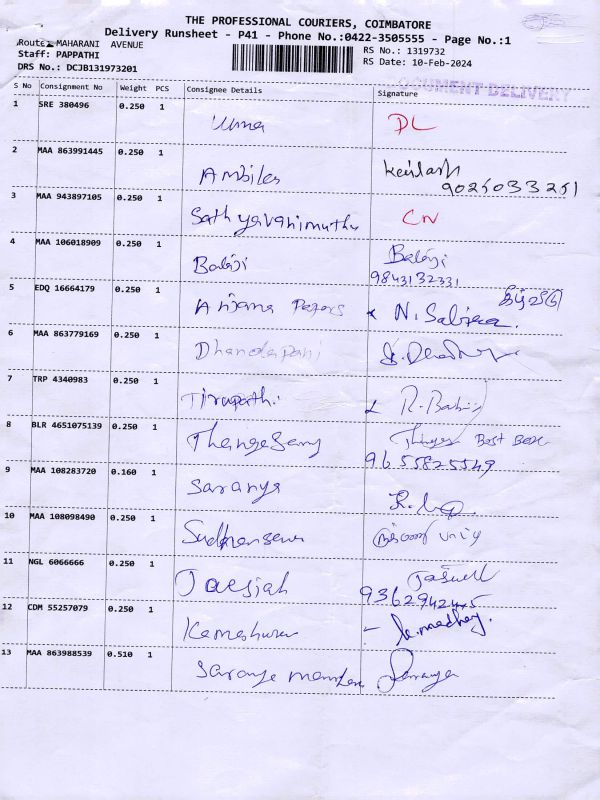 THE PROFESSIONAL COURIERS, COIMBATORE
Delivery Runsheet - P41 - Phone No.:0422-3505555 - Page No.:1
Route: MAHARANI AVENUE
RS No.: 1319732
Staff: PAPPATHI
RS Date: 10-Feb-2024
DRS No.: DCJB131973201
DOCUMENT DELIVERY
S No Consignment No Weight PCS Consignee Details Signature
1 SRE 380496 0.250 1 Uma DL
2 MAA 863991445 0.250 1 Ambika Kailash
9025033251
3 MAA 943897105 0.250 1 Sathyavanimuthu CN
4 MAA 106018909 0.250 1 Balaji Balaji
9843132331
5 EDQ 16664179 0.250 1 Anjana N. Sabeena
6 MAA 863779169 0.250 1 Dhandapani
7 TRP 4340983 0.250 1 Tirupathi R. Babu
8 BLR 4651075139 0.250 1 Best Box
9655825549
9 MAA 108283720 0.160 1 Saranya
10 MAA 108098490 0.250 1
11 NGL 6066666 0.250 1
9362942445
12 CDM 55257079 0.250 1 Kameshwaran
13 MAA 863988539 0.510 1 Saranya Saranya